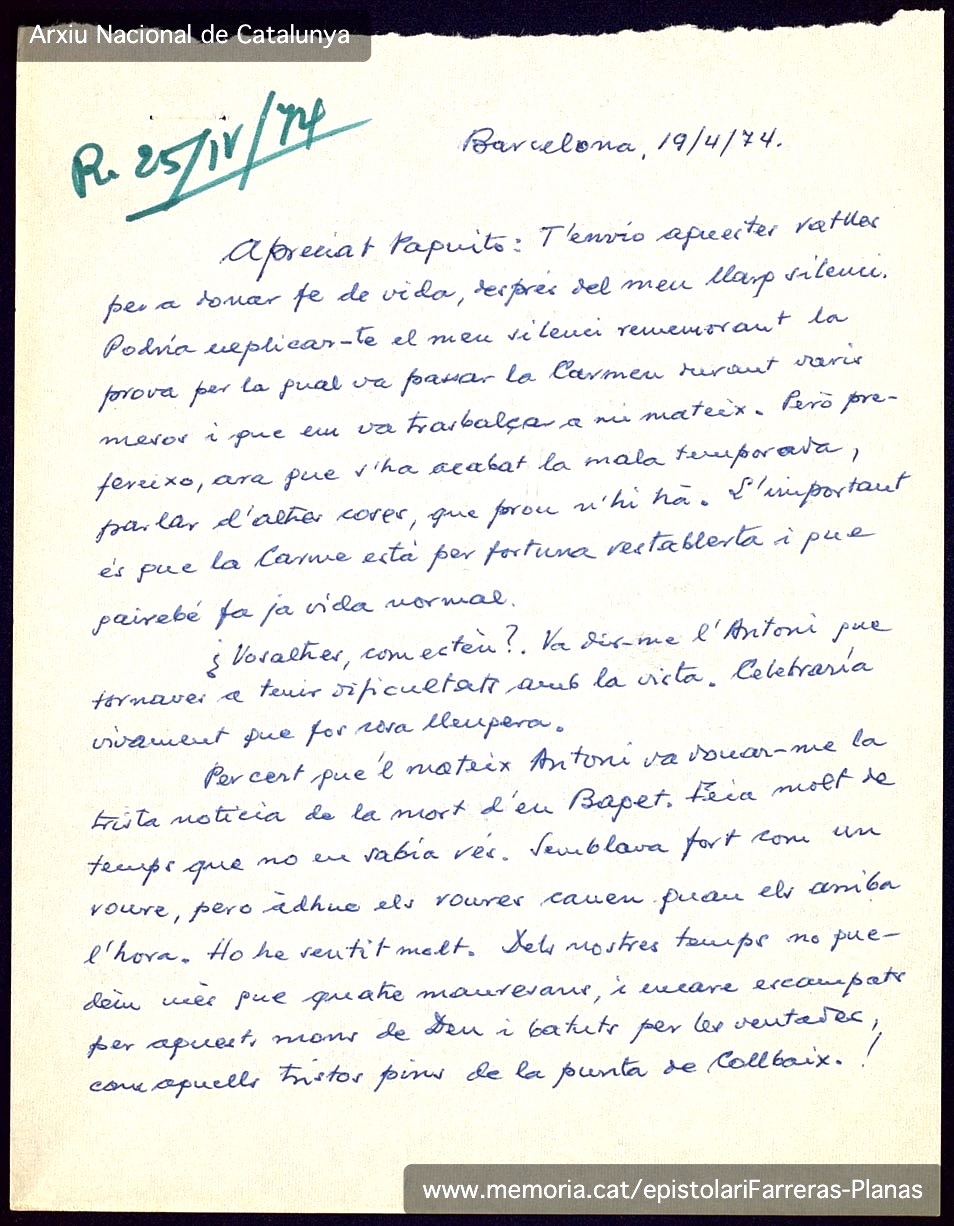 Arxiu Nacional de Catalunya
R. 25/IV/74
Barcelona, 19/4/74.
Apreciat Paquito: T'envio aquestes ratlles
per a donar fe de vida, després del meu llarg silenci.
Podría explicar-te el meu silenci rememorant la
prova per la qual va passar la Carmen durant varis
mesos i que em va trasbalçar a mi mateix. Però pre-
fereixo, ara que s'ha acabat la mala temporada,
parlar d'altres coses, que prou n'hi hà. L'important
és que la Carme està per fortuna restablerta i que
gairebé fa ja vida normal.
¿Vosaltres, com estèu?. Va dir-me l'Antoni que
tornaves a tenir dificultats amb la vista. Celebraría
vivament que fos cosa lleugera.
Per cert que'l mateix Antoni va donar-me la
trista notícia de la mort d'en Baget. Feia molt de
temps que no en sabía rés. Semblava fort com un
roure, pero àdhuc els roures cauen quan els arriba
l'hora. Ho he sentit molt. Dels nostres temps no que-
dèm mès que quatre manresans, i encare escampats
per aquests mons de Deu i batuts per les ventades,
com aquells tristos pins de la punta de Collbaix. !
www.memoria.cat/epistolariFarreras-Planas